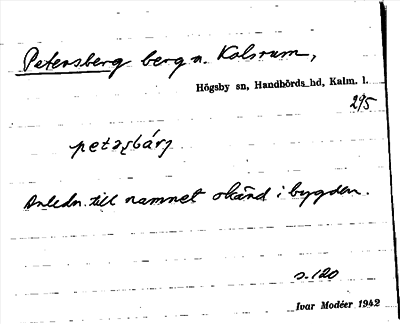 Petersberg berg n. Kalsrum,
Högsby sn, Handbörds hd, Kalm. l.
295
Anledn. till namnet okänd i bygden.
s. 120
Ivar Modéer 1942